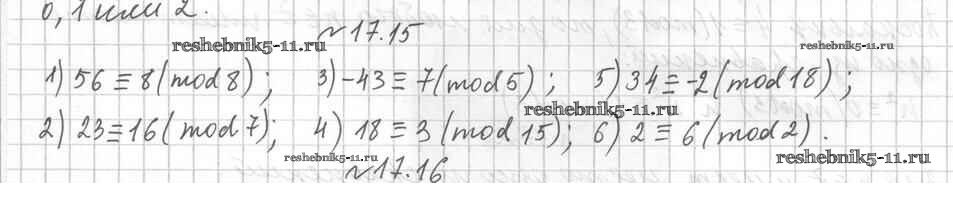 0, 1 или 2.
№17.15
reshebnik5-11.ru
reshebnik5-11.ru
1) 56 ≡ 8 (mod 8); 3) -43 ≡ 7 (mod 5); 5) 34 ≡ -2 (mod 18);
reshebnik5-11.ru
2) 23 ≡ 16 (mod 7); 4) 18 ≡ 3 (mod 15); 6) 2 ≡ 6 (mod 2).
reshebnik5-11.ru
reshebnik5-11.ru
№17.16